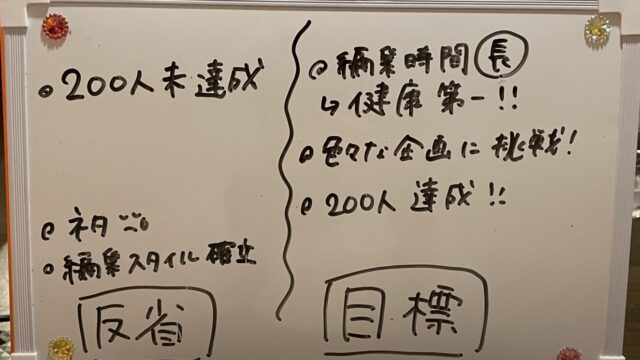 200人未達成
ネタ
編集スタイル確立
反省
編集時間 長
↳健康第一!!
色々な企画に挑戦!
200人達成!!
目標